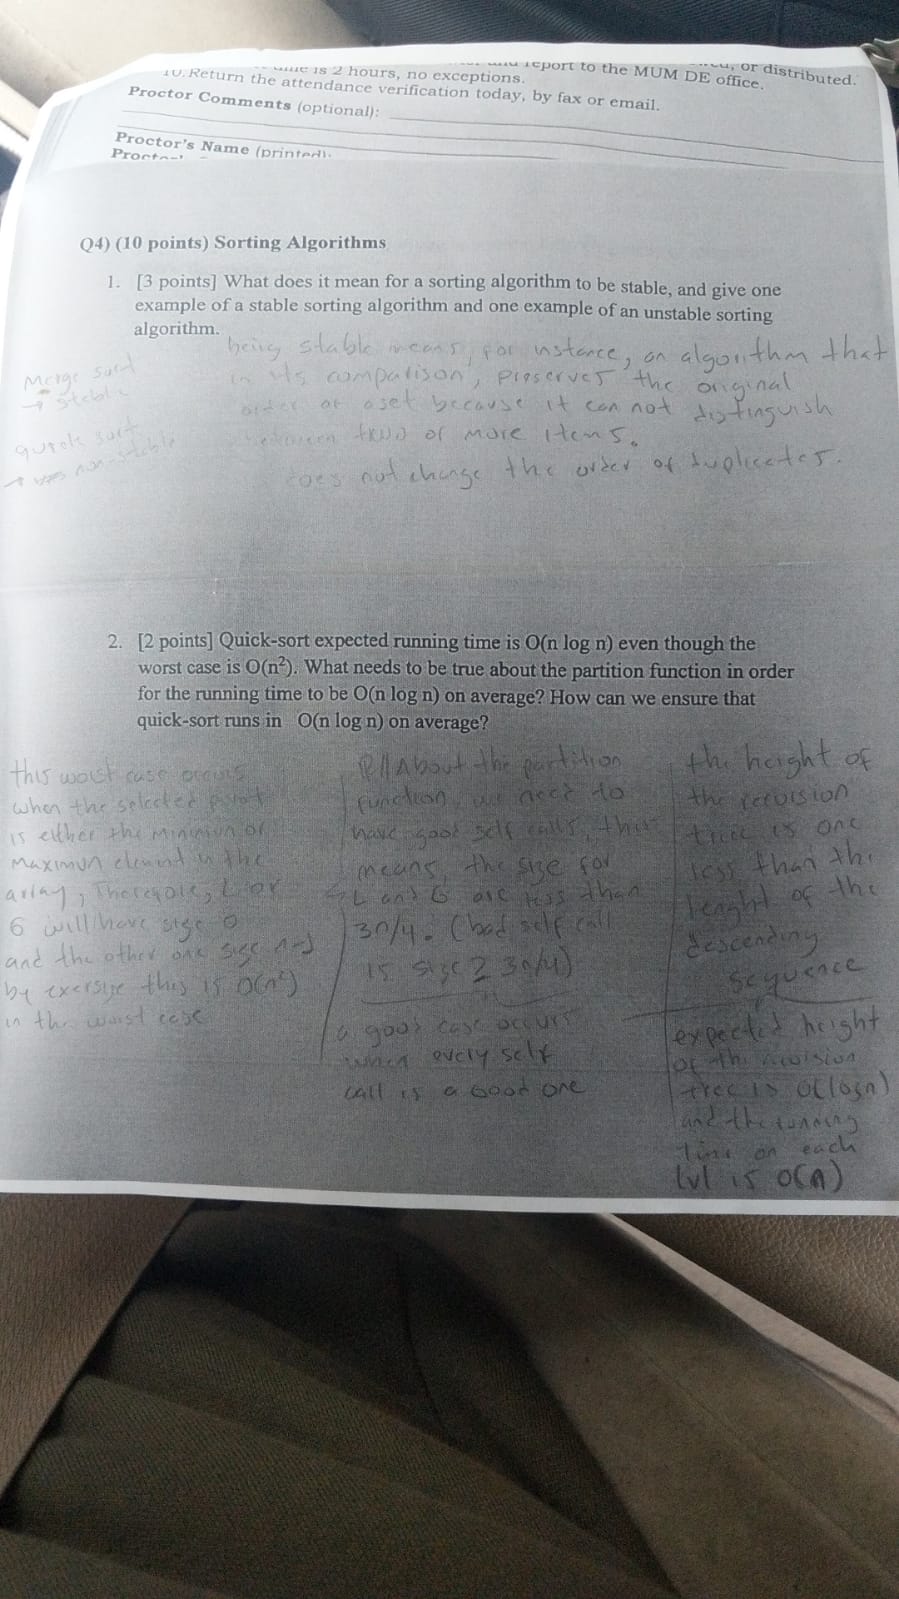 time is 2 hours, no exceptions. and report to the MUM DE office. or distributed.
10. Return the attendance verification today, by fax or email.
Proctor Comments (optional):
Proctor's Name (printed):
Q4) (10 points) Sorting Algorithms
1. [3 points] What does it mean for a sorting algorithm to be stable, and give one
example of a stable sorting algorithm and one example of an unstable sorting
algorithm.
being stable means, for instance, an algorithm that
in its comparison, preserves the original
order of a set because it can not distinguish
between two or more items.
does not change the order of duplicates.
Merge sort
→ stable
quick sort
→ non-stable
2. [2 points] Quick-sort expected running time is O(n log n) even though the
worst case is O(n²). What needs to be true about the partition function in order
for the running time to be O(n log n) on average? How can we ensure that
quick-sort runs in O(n log n) on average?
this worst case occurs
when the selected pivot
is either the minimun or
Maximun element in the
array, Therefore, L or
G will have size 0
and the other one size n-1
by exersize this is O(n²)
in the worst case
About the partition
function, we need to
have good self calls, this
means, the size for
L and G are less than
3n/4. (bad self call
is size ≥ 3n/4)
a good case occurs
when every self
call is a Good one
the height of
the recursion
tree is one
less than the
lenght of the
descending
sequence
expected height
of the recursion
tree is O(logn)
and the running
time on each
lvl is O(n)